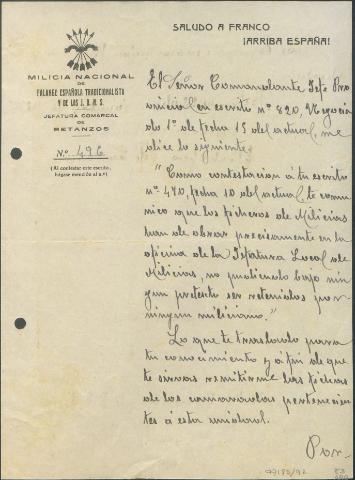 SALUDO A FRANCO
¡ARRIBA ESPAÑA!
MILICIA NACIONAL
DE
FALANGE ESPAÑOLA TRADICIONALISTA
Y DE LAS J. O. N. S.
JEFATURA COMARCAL
DE
BETANZOS
N.º 496
(Al contestar este escrito,
hágase mención al n.º)
El Señor Comandante Jefe Pro
vincial en escrito nº 820, Negocia
do 1º de fecha 15 del actual, me
dice lo siguiente
"Como contestacion á tu escrito
nº 470, fecha 10 del actual, te comu
nico que las fichas de Milicias
han de obrar precisamente en la
oficina de la Jefatura Local de
Milicias, no pudiendo bajo nin
gun pretexto ser retenidas por
ningun miliciano."
Lo que te traslado para
tu conocimiento y á fin de que
te sirvas remitirme las fichas
de los camaradas pertenecien
tes á esta unidad.
Por